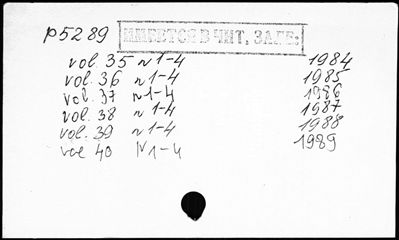 p5289 ИМЕЕТСЯ В ЧИТ. ЗАЛЕ:
vol. 35 N 1-4 1984
vol. 36 N 1-4 1985
vol. 37 N 1-4 1986
vol. 38 N 1-4 1987
vol. 39 N 1-4 1988
vol 40 N 1-4 1989